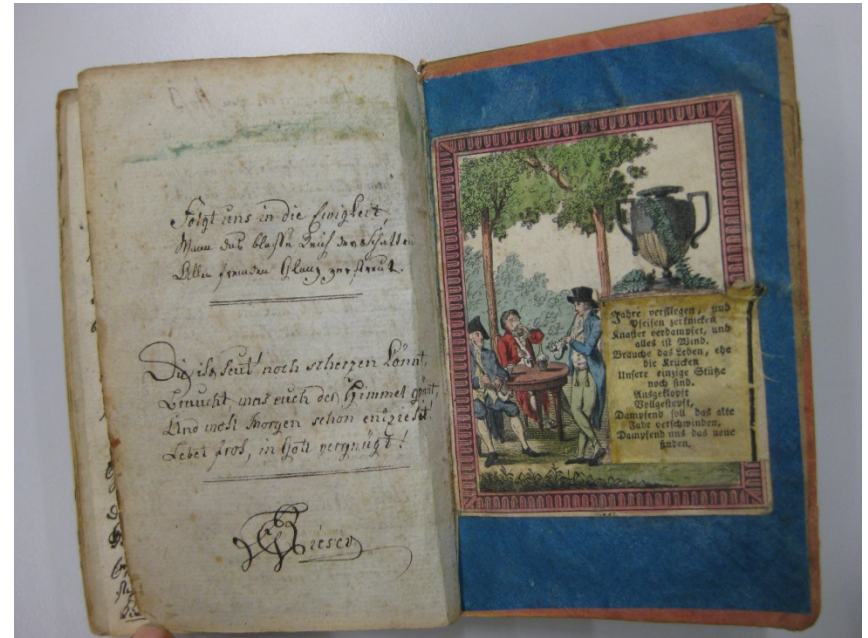 Folgt uns in die Ewigkeit,
Wann das blasse Reich der Schatten
Allen fremden Glanz zerstreut.
Die ihr heut' noch scherzen könnt,
Braucht was euch der Himmel gönnt,
Und wohl Morgen schon entzieht,
Lebet froh, in Gott vergnügt!
Jahre verfliegen, und
Pfeifen zerknicken
Knaster verdampfet, und
alles ist Wind.
Brauche das Leben, ehe
die Krücken
Unsere einzige Stütze
noch sind.
Ausgeklopft
Vollgestopft,
Dampfend soll das alte
Jahr verschwinden,
Dampfend uns das neue
finden.